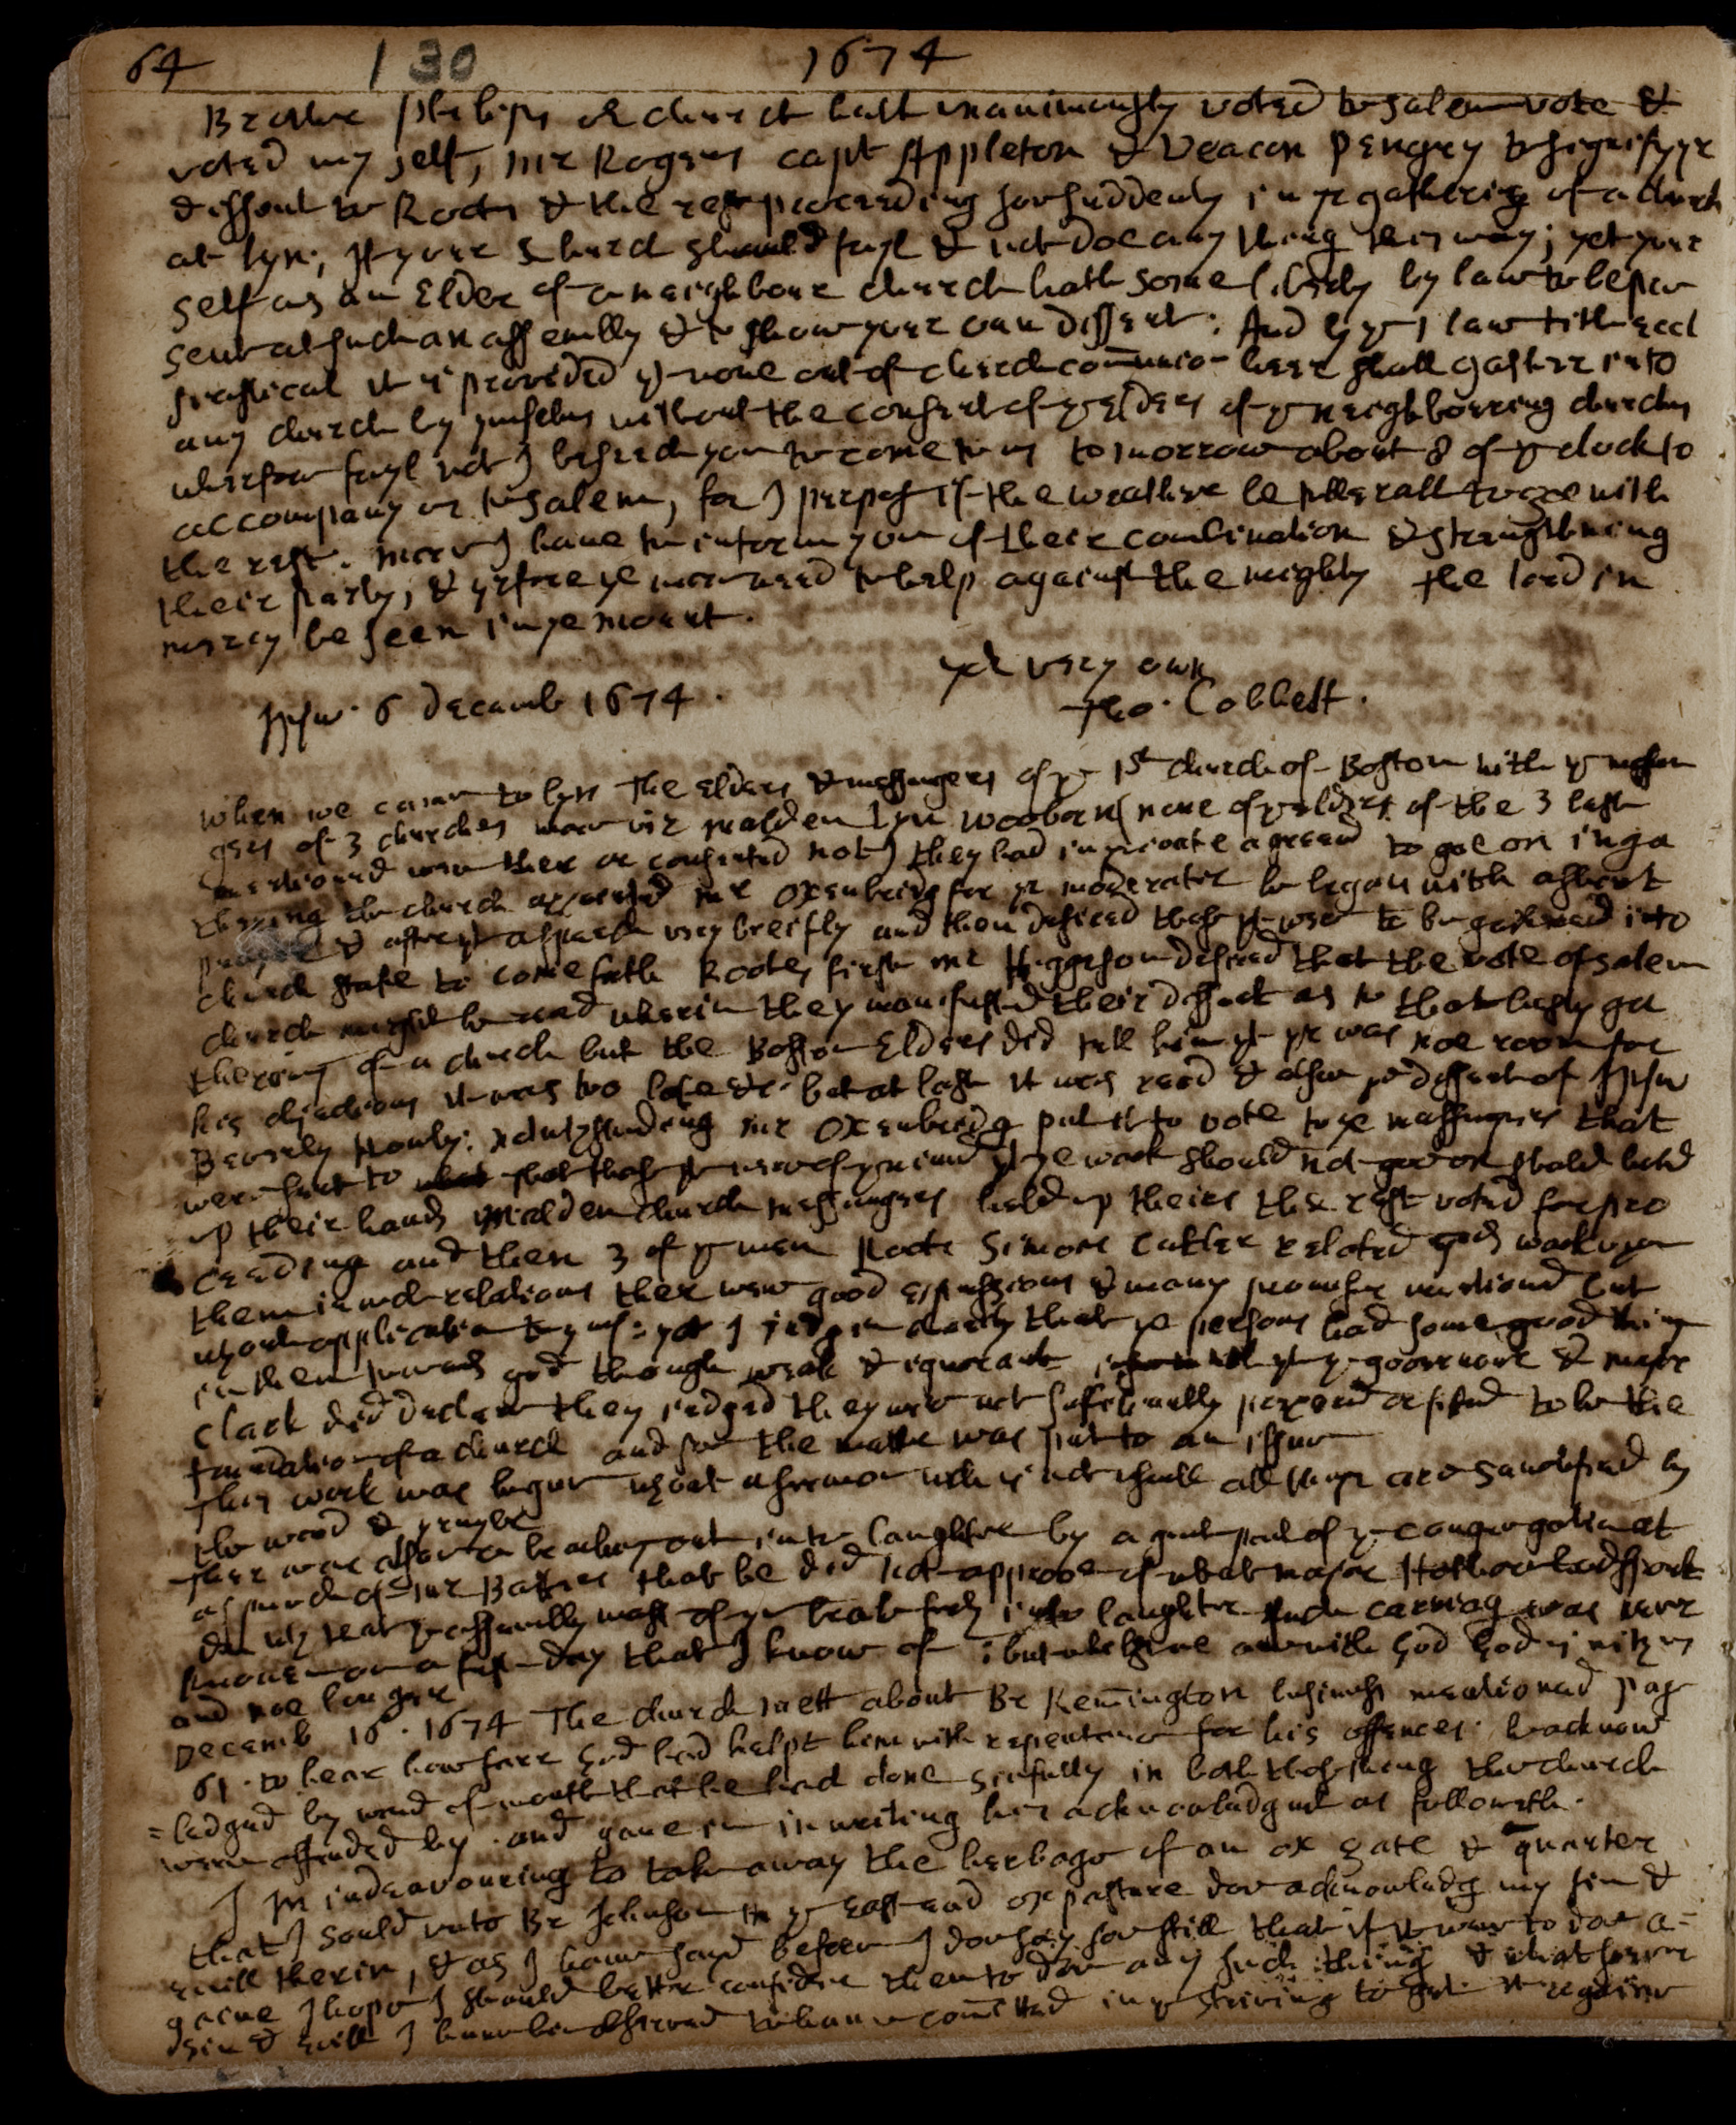 64 130 1674
Brother Philips or church hath unanimously voted to Salem vote &
voted my self, mr Rogers capt Appleton & Deacon Pengry to signify yr
dissent to Roots & the rest proceeding soe suddenly in ye gathering of a church
at lyn; If your Church should fayl & not doe any thing this way; yet your
self as an Elder of a neighbour church hath some liberty by law to be pre
sent at such an assembly & to show your own dissent: And by yt law title eccl
siasticall it is provided yt none out of church comunio- here shall gather into
any church by ymselves without the consent of ye elders of ye neighboring churches
wherfore fayl not I beseech you to come to us to morrow about 8 of ye clock to
accompany us to Salem, for I purpose if the weather be tollerall to goe with
the rest. more I have to inform you of their combination & strengthning
their party, & yrfore ye more need to help against the mighty the lord in
mercy be seen in ye mount.
yor very own
Ipsw. 6 Decemb 1674. Tho. Cobbett.
When we came to lyn The Elders & messengers of ye 1st church of Boston with ye messen
gers of 3 churches more viz malden lyn wooborn (none of ye elders of the 3 last
mentioned were ther or consented not) they had in private agreed to goe on in ga
thering the church appointed mr Oxenbridg for yr moderator he began with a short
prayer & after yt a speech very breifly and then desired those yt were to be gathered into
church state to come forth Roots first mr Higgeson desired that the vote of salem
church might be read wherin they manifested their dissent as to that hasty ga
thering of a church but the Boston Elders did tell him yt yr was noe room for
his objections it was too late &c. but at last it was read & also ye dissent of Ipsw
Beverly Rowly: notwthstanding mr Oxenbridg put it to vote to ye messengers that
were sent to that those yt were of ye mind yt ye work should not goe on should hold
up their hands Malden church messengers held up theirs the rest voted for pro
ceeding and then 3 of ye men Roots Simons cutler related gods work upon
them in wch relations ther were good expressions & many promises mentioned but
wthout application to ymselves: yet I judg in charity that ye persons had some good thing
in them towards god though weak & ignorant yt ye governour & major
Clark did declare they judged they were not sufficiently prepared or fitted to be the
foundation of a church and soe the matter was put to an issue
This work was begun wthout a sermon wch is not usuall all things are sanctified by
the word & prayer
Ther was also a breaking out into laughter by a great part of ye congregation at
a speech of mr Batters that he did not approve of what major Hathorn had spoke
on wch yeat ye assembly most of ym brake forth into laughter such carriag was never
known on a fast-day that I know of: but whither are with God God is with us
and noe longer
Decemb 16. 1674 The church mett about Br Remington business mentioned pag
61. to hear how farr God had helpt him with repentance for his offences. he acknow
=ledged by word of mouth that he had done sinfully in both those things the church
were offended by. and gave in in writing his acknowledgmt as followeth.
I in indeavouring to take away the herbage of an ox gate & quarter
that I sould unto Br Johnson in ye east end ox pasture doe acknowledg my sin &
evill therin, & as I have sayd before I doe say soe still that if it were to doe a=
gaine I hope I should better consider then to doe any such thing & what soever
sin & evill I have been observed to have comitted in ye striving to get it againe